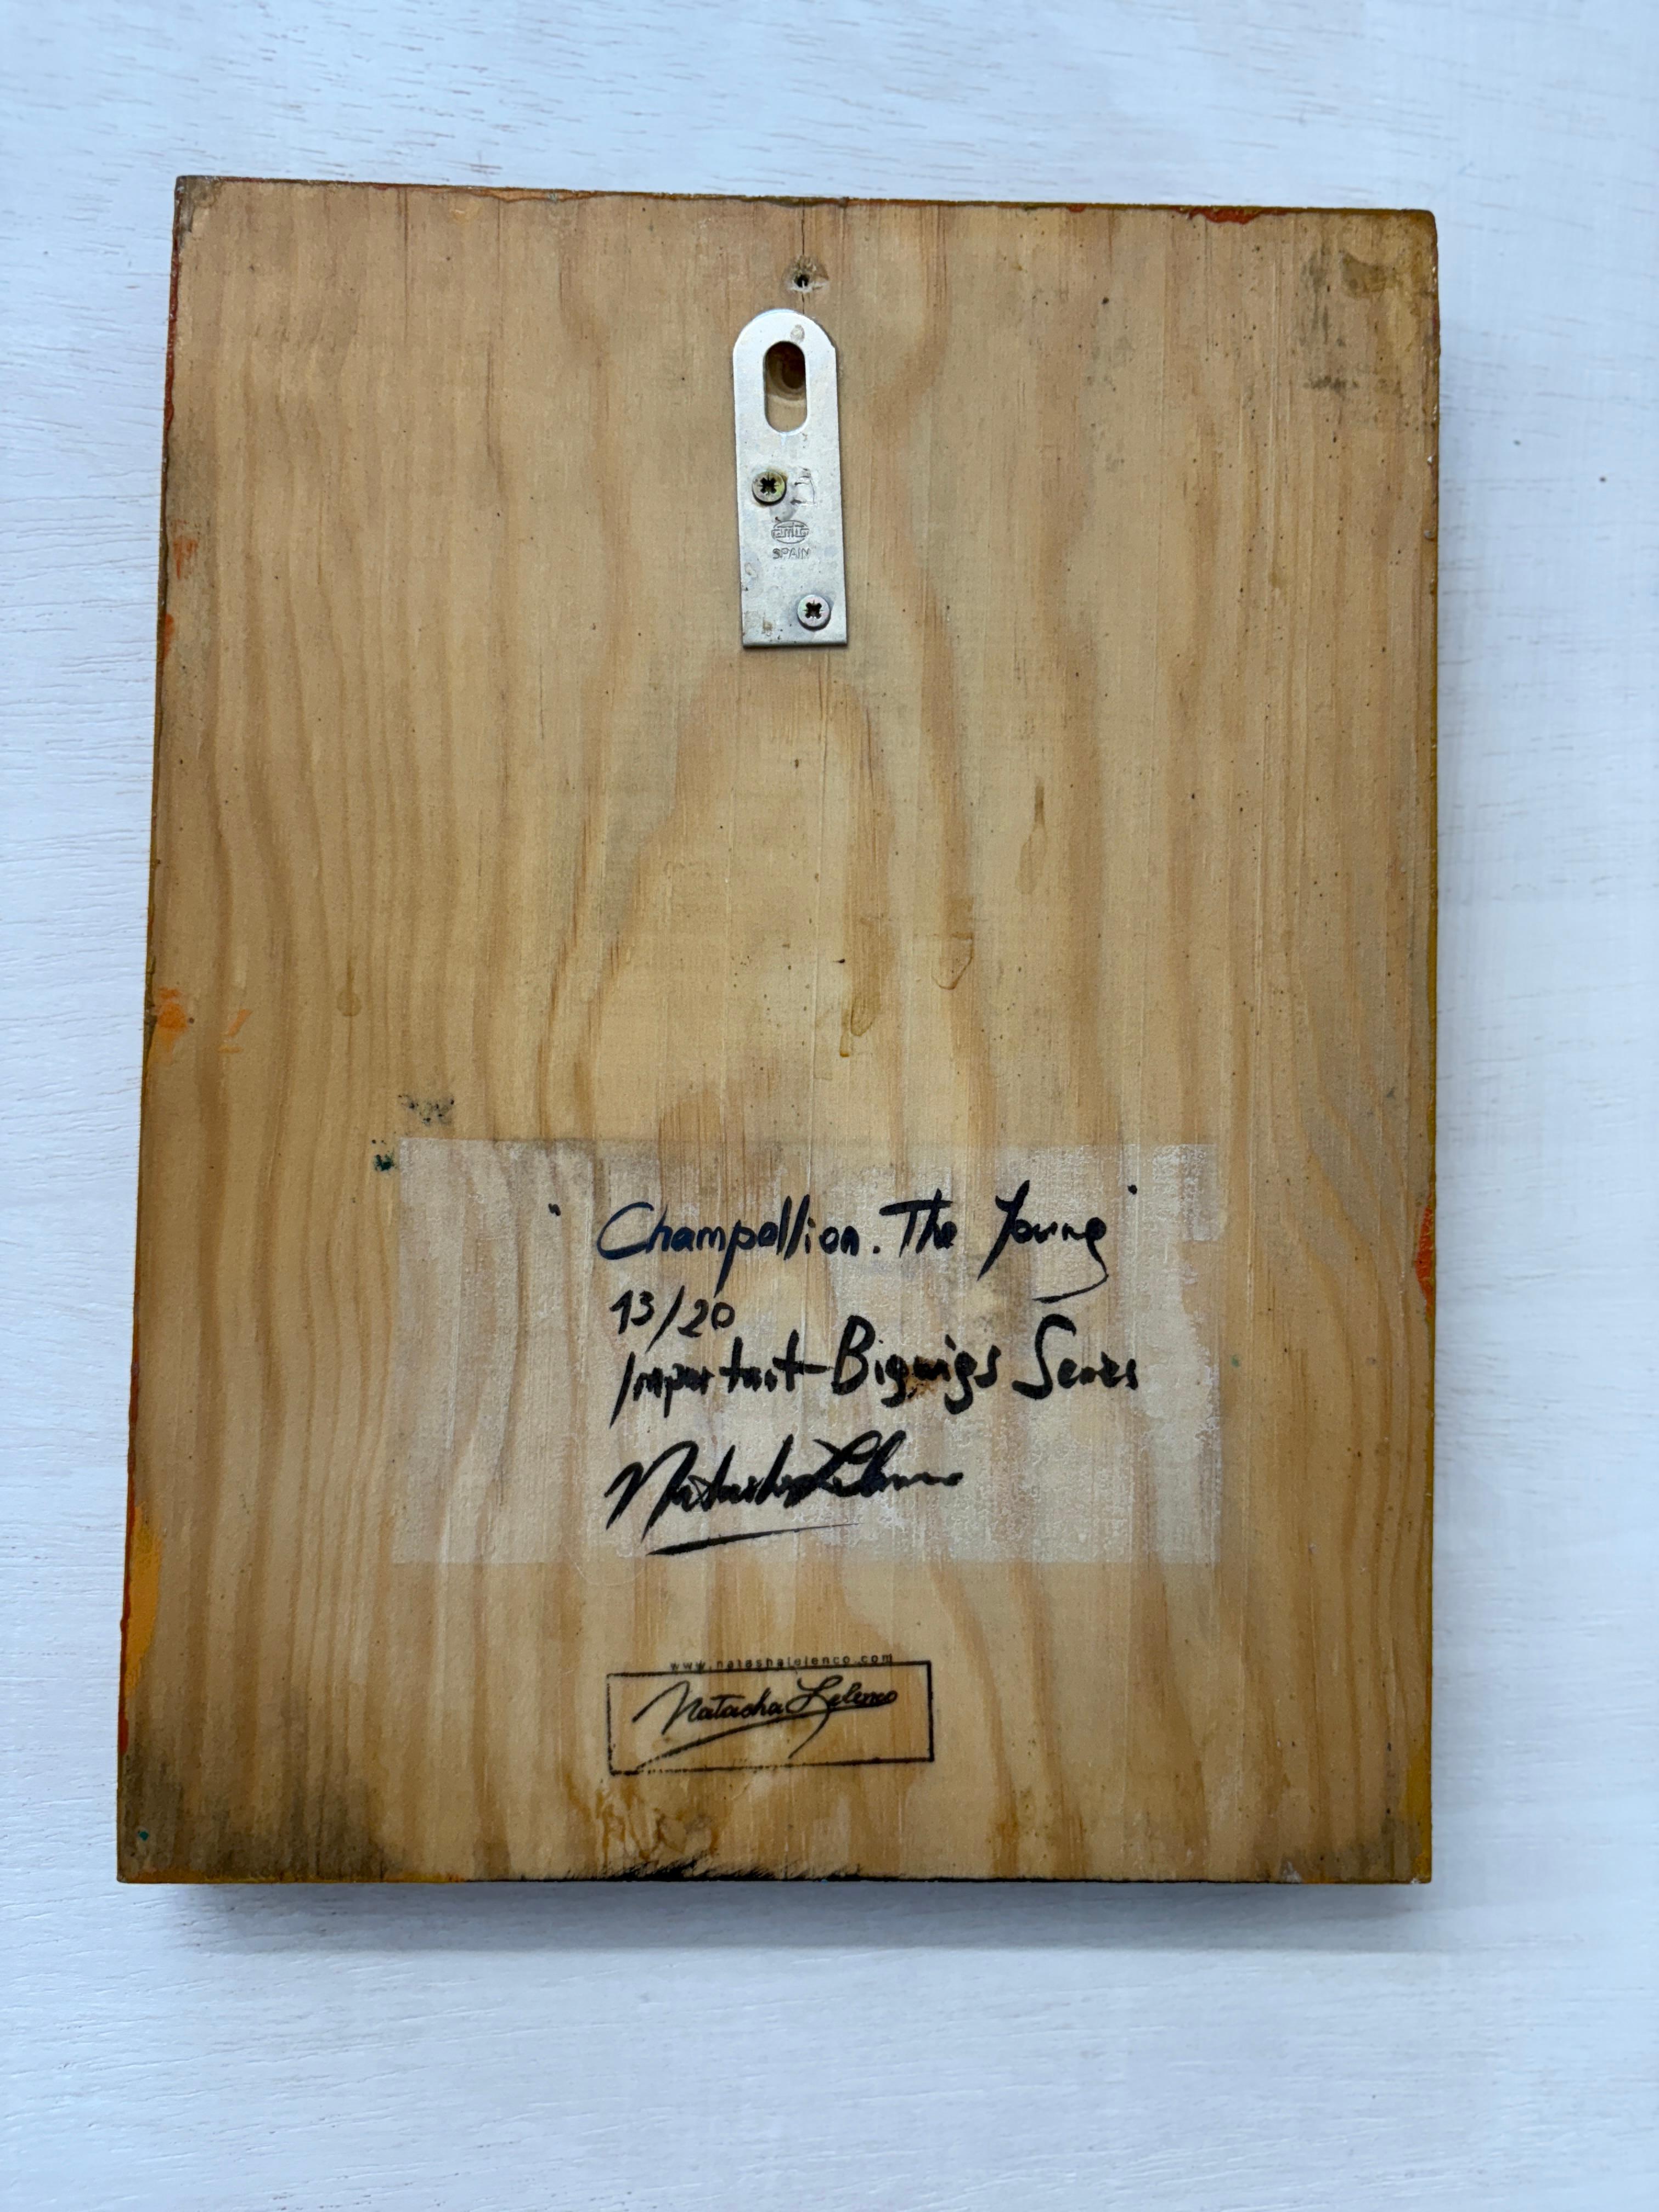 amig
SPAIN
"Champollion. The Young"
13/20
Important-Bigwigs Series
Natasha Lelenco
www.natashalelenco.com
Natasha Lelenco